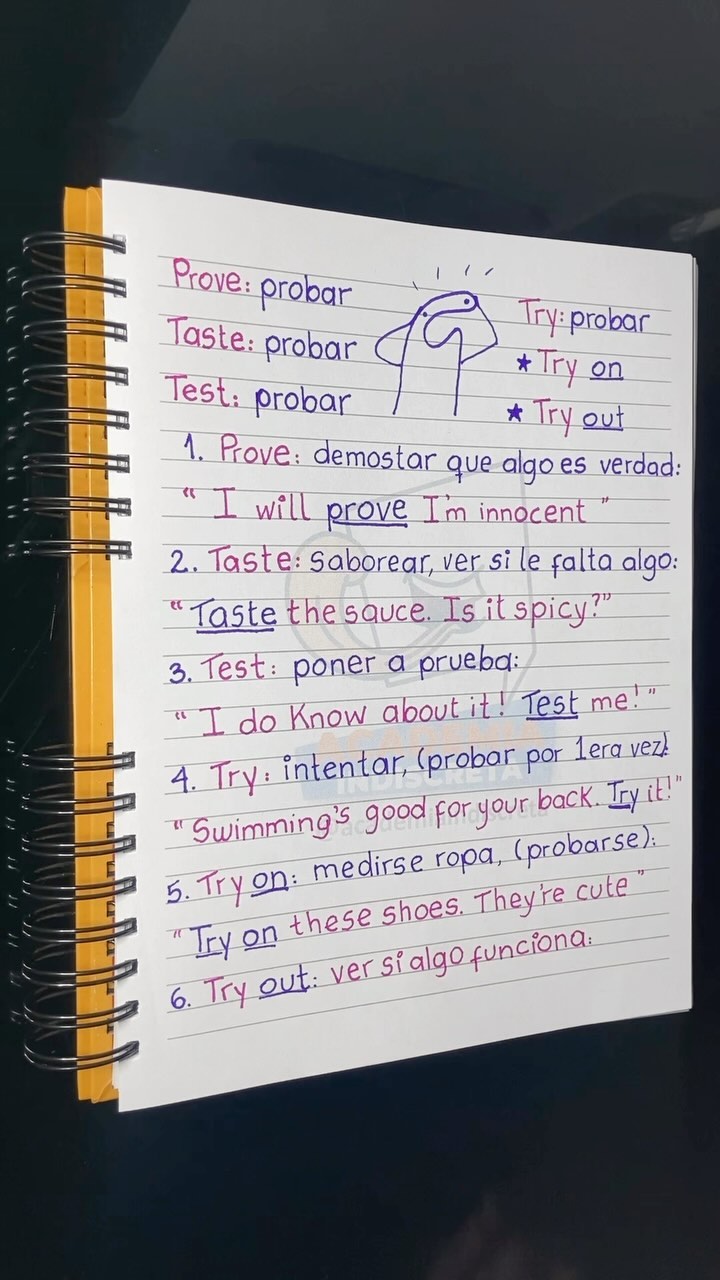 Prove: probar
Taste: probar
Test: probar
Try: probar
* Try on
* Try out
1. Prove: demostar que algo es verdad:
" I will prove I'm innocent "
2. Taste: saborear, ver si le falta algo:
" Taste the sauce. Is it spicy?"
3. Test: poner a prueba:
" I do Know about it! Test me!"
4. Try: intentar, (probar por 1era vez)
" Swimming's good for your back. Try it!"
5. Try on: medirse ropa, (probarse):
" Try on these shoes. They're cute "
6. Try out: ver si algo funciona:
ACADEMIA
INDISCRETA
@academiaindiscreta